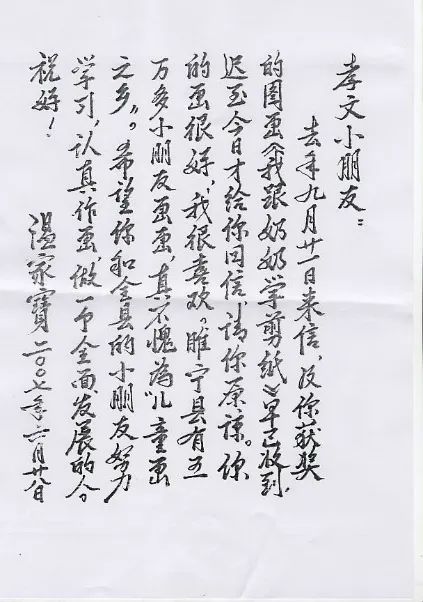 孝文小朋友：
去年九月廿一日来信，及你获奖
的图画《我跟奶奶学剪纸》早已收到，
迟至今日才给你回信，请你原谅。你
的画很好，我很喜欢。睢宁县有五
万多小朋友画画，真不愧為“儿童画
之乡”。希望你和全县的小朋友努力
学习，认真作画，做一个全面发展的人。
祝好！
温家寶 二〇〇七年六月廿八日